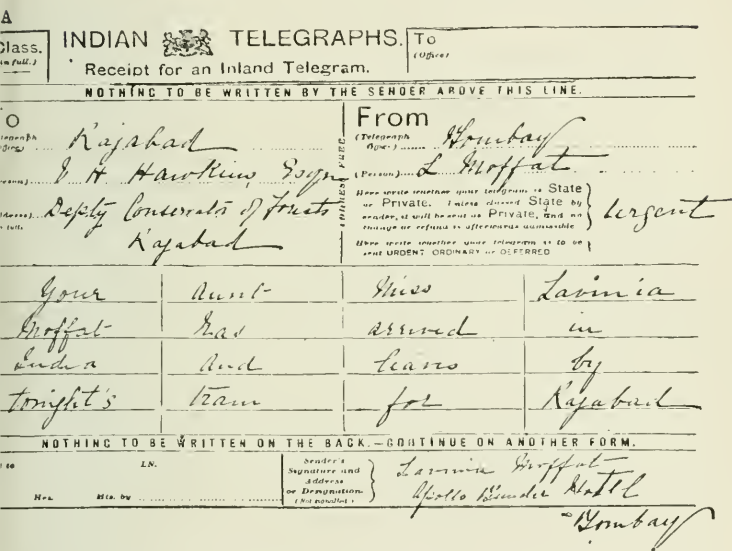 A
Class. INDIAN TELEGRAPHS. To
(in full.) Receipt for an Inland Telegram. (Office)
NOTHING TO BE WRITTEN BY THE SENDER ABOVE THIS LINE.
O From
Rajabad (Telegraph Office) Bombay
J H Hawkins, Esqre (Person) L Moffat
Depty Conservator of Forests
Rajabad
ADDRESS FREE
Here write whether your telegram is State
or Private. Unless classed State by
sender, it will be sent as Private, and no
change or refund is afterwards admissible
Urgent
Here write whether your telegram is to be
sent URGENT ORDINARY or DEFERRED
Your aunt Miss Lavinia
Moffat has arrived in
India and leaves by
tonight's train for Rajabad
NOTHING TO BE WRITTEN ON THE BACK.—CONTINUE ON ANOTHER FORM.
to I.N. Sender's Signature and Address or Designation (Not signalled) Lavinia Moffat
Hrs. Mts. by Apollo Bunder Hotel
Bombay